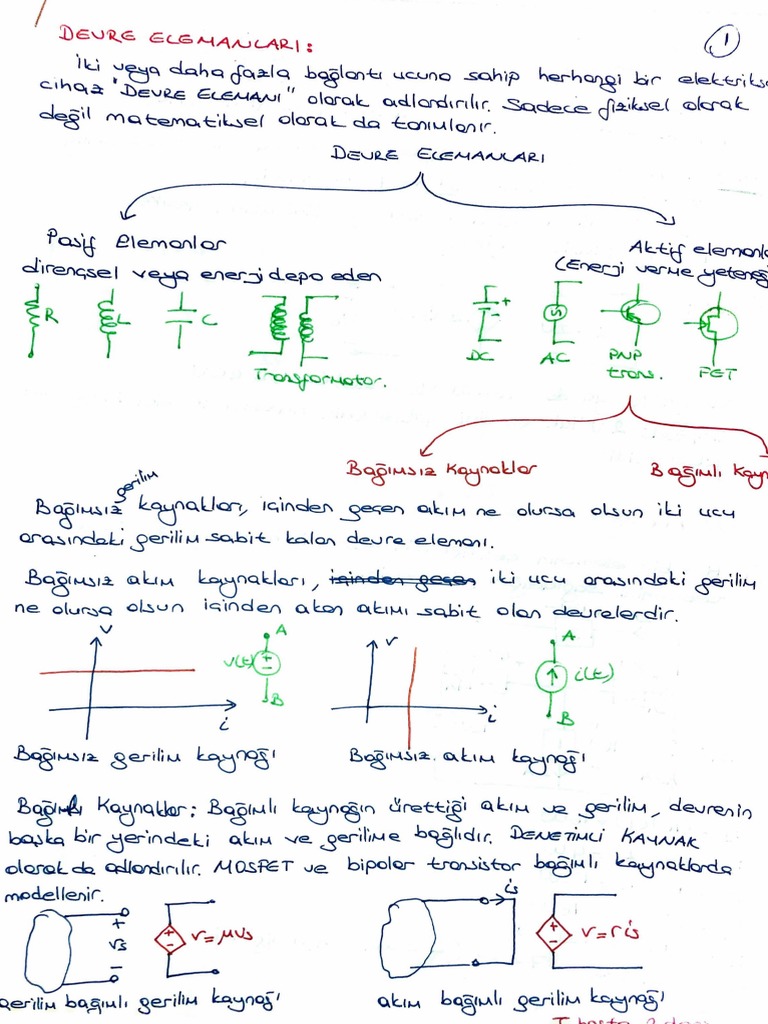 DEVRE ELEMANLARI:
1
İki veya daha fazla bağlantı ucuna sahip herhangi bir elektriksel
cihaz "DEVRE ELEMANI" olarak adlandırılır. Sadece fiziksel olarak
değil matematiksel olarak da tanımlanır.
DEVRE ELEMANLARI
Pasif Elemanlar
dirençsel veya enerji depo eden
Aktif eleman
(Enerji verme yeteneği
R L C
Transformator.
+ -
DC
S
AC
PNP
trans.
FET
Bağımsız Kaynaklar
Bağımlı Kayn
gerilim
Bağımsız kaynakları, içinden geçen akım ne olursa olsun iki ucu
arasındaki gerilim sabit kalan devre elemanı.
Bağımsız akım kaynakları, içinden geçen iki ucu arasındaki gerilim
ne olursa olsun içinden akan akımı sabit olan devrelerdir.
v
i
A
v(t) + -
B
v
i
A
i(t)
B
Bağımsız gerilim kaynağı
Bağımsız akım kaynağı
Bağımlı Kaynaklar: Bağımlı kaynağın ürettiği akım ve gerilim, devrenin
başka bir yerindeki akım ve gerilime bağlıdır. DENETİMLİ KAYNAK
olarak da adlandırılır. MOSFET ve bipolar transistor bağımlı kaynaklarda
modellenir.
+
vs
-
+ - v=μvs
is
+ - v=ris
gerilim bağımlı gerilim kaynağı
akım bağımlı gerilim kaynağı